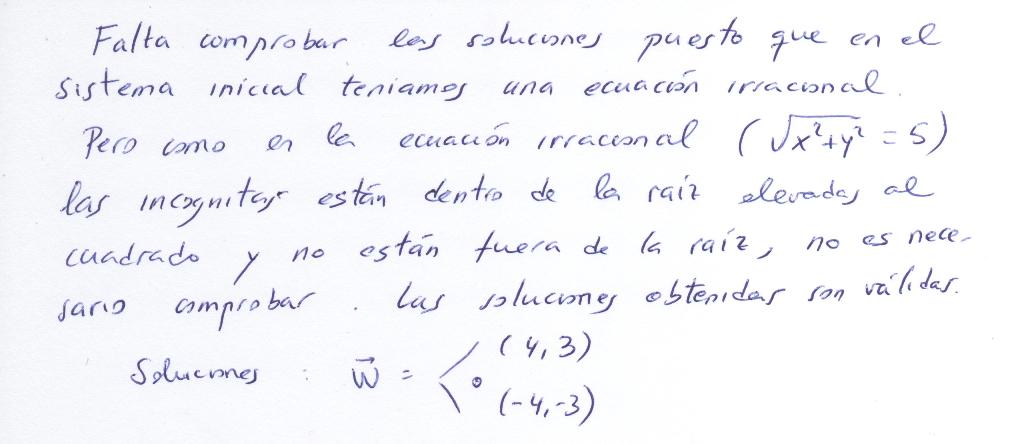 Falta comprobar las soluciones puesto que en el
sistema inicial teniamos una ecuación irracional.
Pero como en la ecuación irracional (√x²+y² = 5)
las incognitas están dentro de la raíz elevadas al
cuadrado y no están fuera de la raíz, no es nece-
sario comprobar. Las soluciones obtenidas son válidas.
Soluciones : w⃗ = < (4,3)
o
(-4,-3)